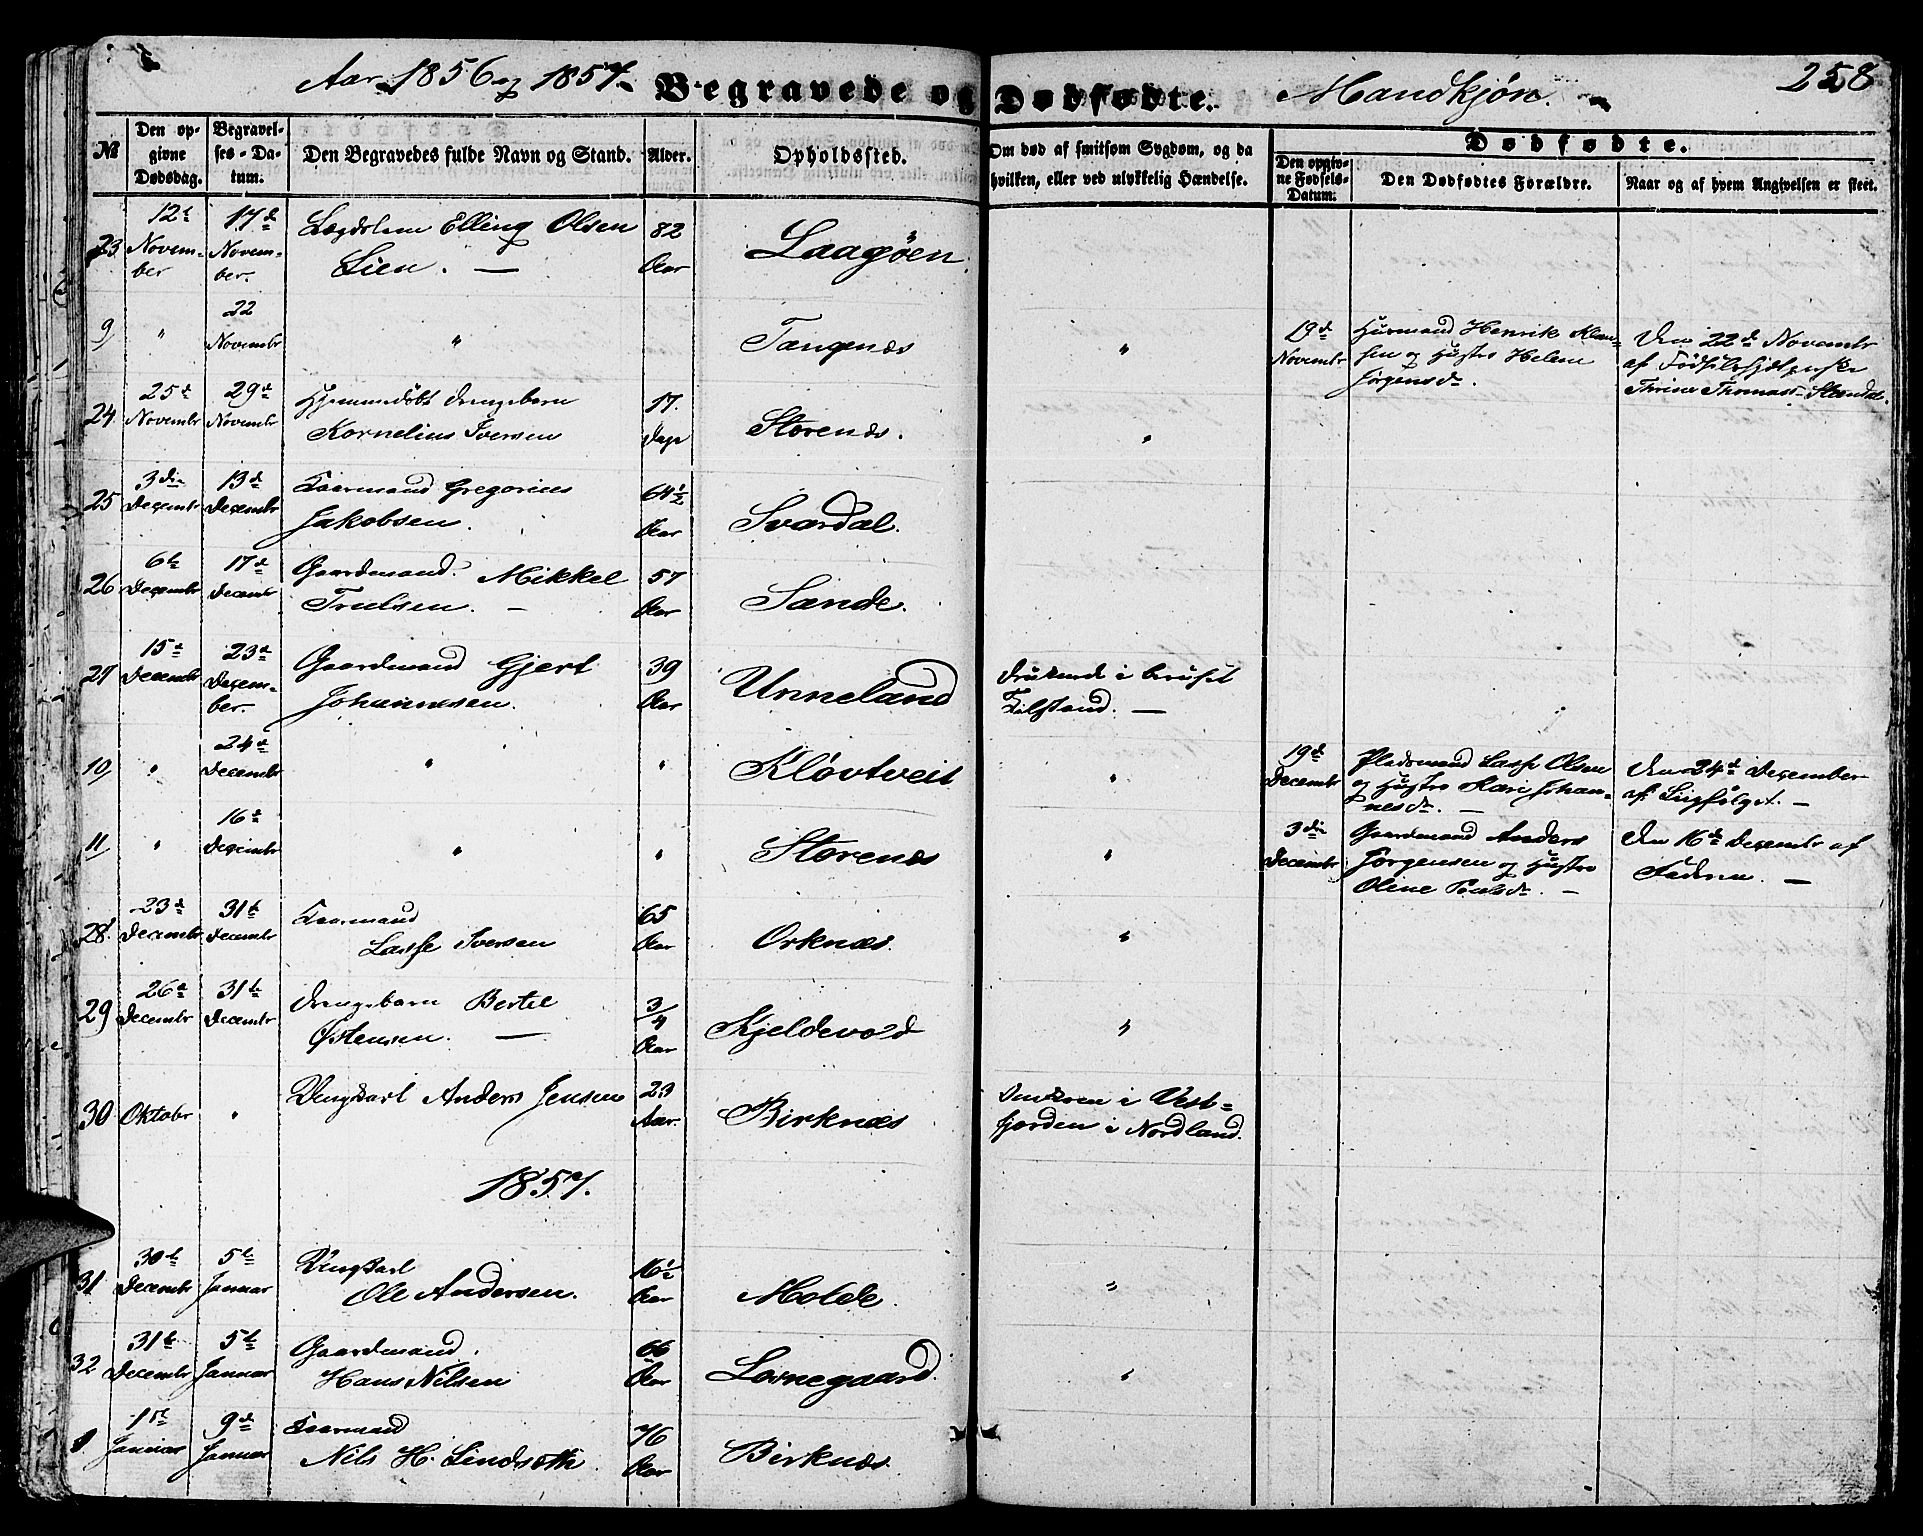 Aar 1856 og 1857. Begravede og Dødfødte. Mandkjøn. 258
No
Den opgivne Dødsdag.
Begravelses-Datum.
Den Begravedes fulde Navn og Stand.
Alder.
Opholdssted.
Om død af smitsom Sygdom, og da
hvilken, eller ved ulykkelig Hændelse.
Dødfødte.
Den opgivne Fødsels-Datum.
Den Dødfødtes Forældre.
Naar og af hvem Angivelsen er skeet.
23 12te November 17de November. Lægdslem Elling Olsen
Lien. — 82 Aar Laagøen.
9 " 22 November " Tangenæs " 19de November Huusmand Henrik
og Hustro Helene
Jørgensdr. Den 22de November
af Fødselshjelperske
Thrine Thomasd.
24 25de November 29de November Hjemmedøbt Drengebarn
Kornelius Iversen 17. Dage Storenæs. "
25 3die December 13de December Kaarmand Gregorius
Jakobsen. 64½ Aar Sværdal.
26 6te December 17de December Gaardmand. Mikkel
Trulsen. — 57 Aar Sande.
27 15de December 23de December. Gaardmand Gjert
Johannesen. 39 Aar Unneland Druknede i beruset
Tilstand. —
10 " 24de December " " Kløvtveit " 19de December Pladsmand Lasse Olsen
og Hustro Kari Johan-
nesdr. — Den 24de December
af Liigfølget. —
11 " 16de December " " Storenæs " 3die December Gaardmand Anders
Jørgensen og Hustro
Oline Paulsdr. — Den 16de December af
Faderen. —
28. 23de December 31te December Kaarmand
Lasse Iversen 65 Aar Orknæs. "
29 26de December 31te December Drengebarn Bertel
Østensen. — 3/4 Aar Kjeldevold "
30 Oktober " Ungkarl Anders Jensen 23 Aar. Birknæs i Vest-
fjorden i Nordland.
1857.
31 30te December 5te Januar Ungkarl
Ole Andersen. 16½ Aar Molde. "
32 31te December 5te Januar Gaardmand.
Hans Nilsen 66 Aar Lovnegaard. "
1 1ste Januar 9de Januar Kaarmand
Nils H. Lindsæth. 76 Aar Birknæs.